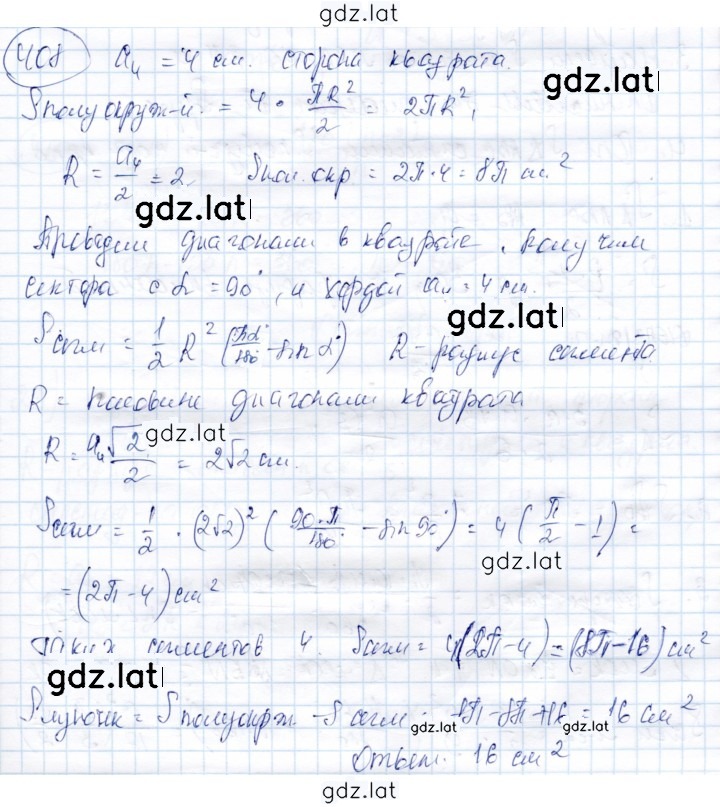 gdz.lat
408 a₄ = 4 см. сторона квадрата.
gdz.lat
Sполуокруж-й. = 4 · πR²/2 = 2πR²,
R = a₄/2 = 2. Sпол.окр = 2π·4 = 8π см²
gdz.lat
Проведем диагонали в квадрате, получим
сектора с α = 90°, и хордой a₄ = 4 см.
gdz.lat
Sсегм = 1/2 R² (πα°/180° - sin α°) R - радиус сегмента
R = половине диагонали квадрата
gdz.lat
R = a₄√2/2 = 2√2 см.
Sсегм = 1/2 · (2√2)² (90·π/180° - sin 90°) = 4 (π/2 - 1) =
gdz.lat
= (2π - 4) см²
таких сегментов 4. Sсегм = 4(2π-4) = (8π-16) см²
gdz.lat
Sлуночек = Sполуокрж. - Sсегм. = 8π - 8π + 16 = 16 см²
gdz.lat gdz.lat
Ответ. 16 см²
gdz.lat